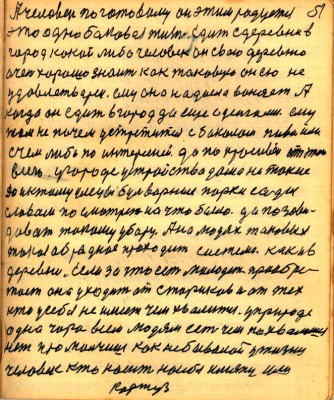 А человек поготовому он этим радуется 51
это одно бывает тит. сдит сдеревни в
город какой либо человек он свою деревню
очен хорошо знаит как таковую он ею не
удовлетв. ему она надоела воняет А
когда он сдит вгород да еще сденгами. ему
там не почем устретится с бакалом пива или
счем либо по интересней да по красивей от этого
вить угороде устройства дома не такие
улицы булварные парки сады
словам посмотрет на что было. да позави-
доват такому убору. А на людях таковых
такая абрядное праходит система. как и в
деревни. села за это ест молодеж приобре-
тает она уходит от стариков и от тех
кто усебя не имеет чем хвалится. у природе
одна чара всем людям ест чем похвалится
нет промолчиш как небывалой ужизни
человек кто носит на себя шляпу или
картуз